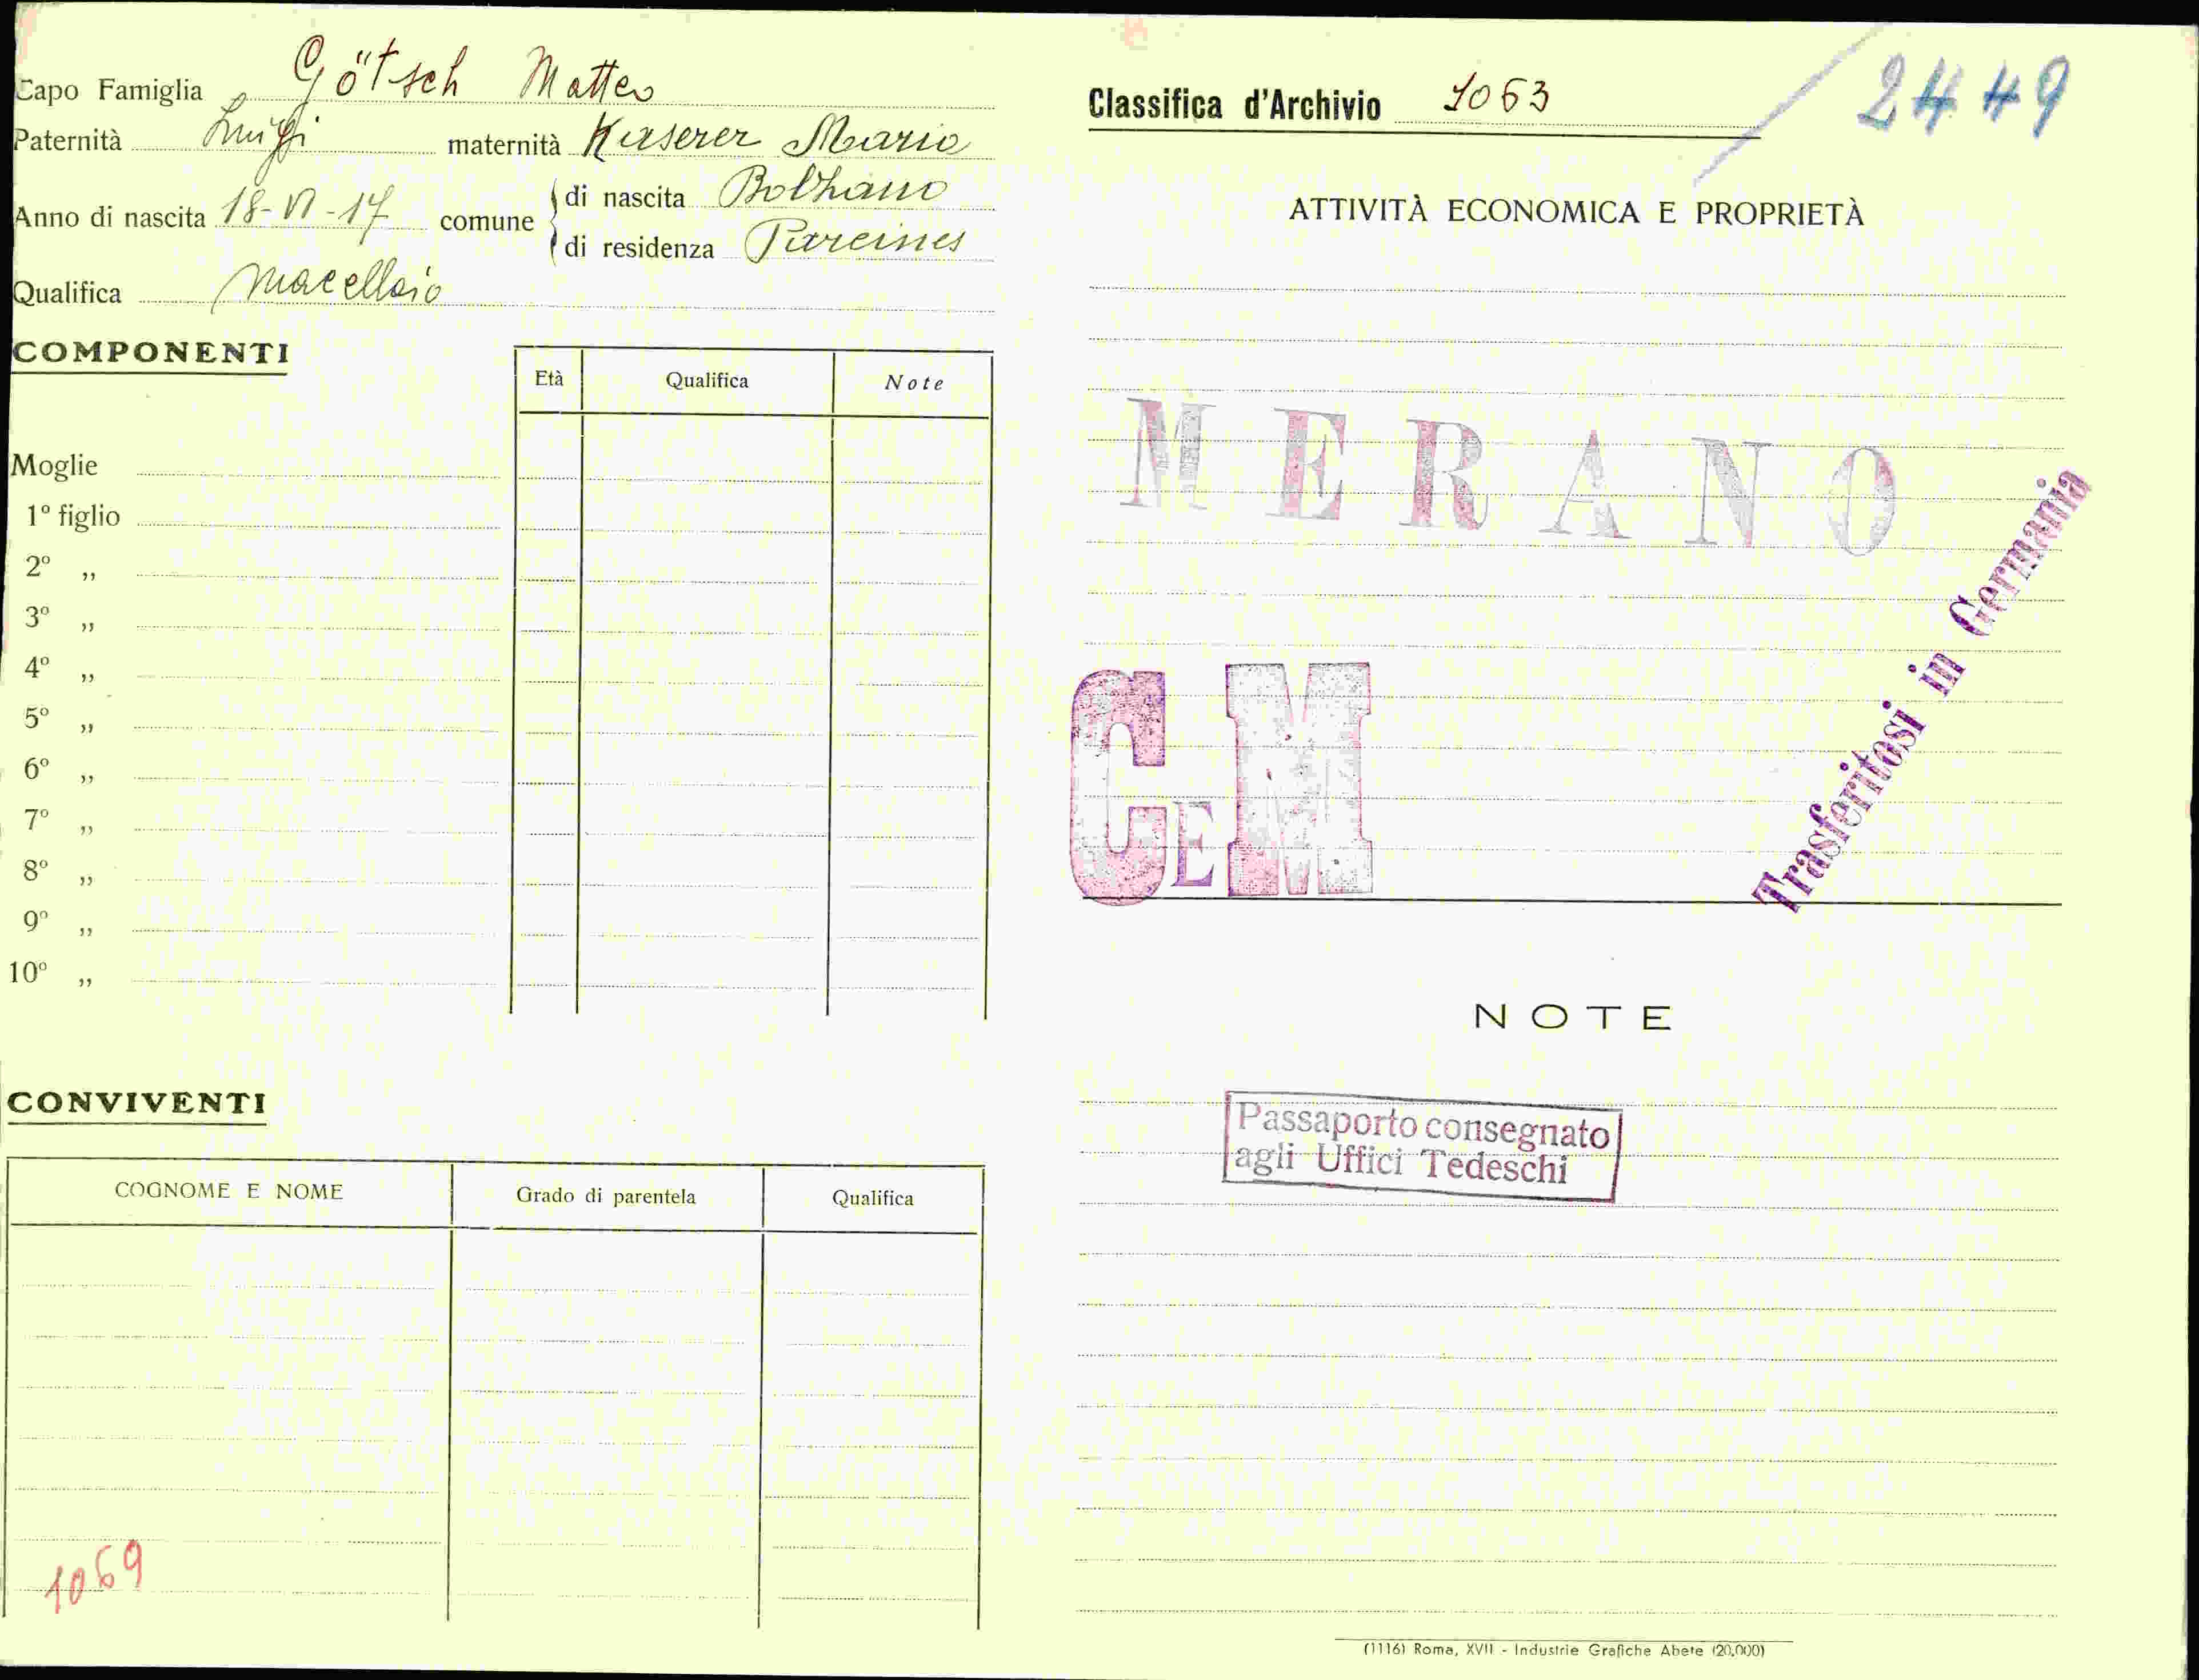 Capo Famiglia Götsch Matteo
Paternità Luigi maternità Kaserer Maria
Anno di nascita 18-VI-17 comune di nascita Bolzano
di residenza Parcines
Qualifica Macellaio
COMPONENTI
Età Qualifica Note
Moglie
1º figlio
2º „
3º „
4º „
5º „
6º „
7º „
8º „
9º „
10º „
CONVIVENTI
COGNOME E NOME Grado di parentela Qualifica
1069
Classifica d'Archivio 1063 2449
ATTIVITÀ ECONOMICA E PROPRIETÀ
MERANO
Trasferitosi in Germania
CEM
NOTE
Passaporto consegnato
agli Uffici Tedeschi
(1116) Roma, XVII - Industrie Grafiche Abete (20.000)